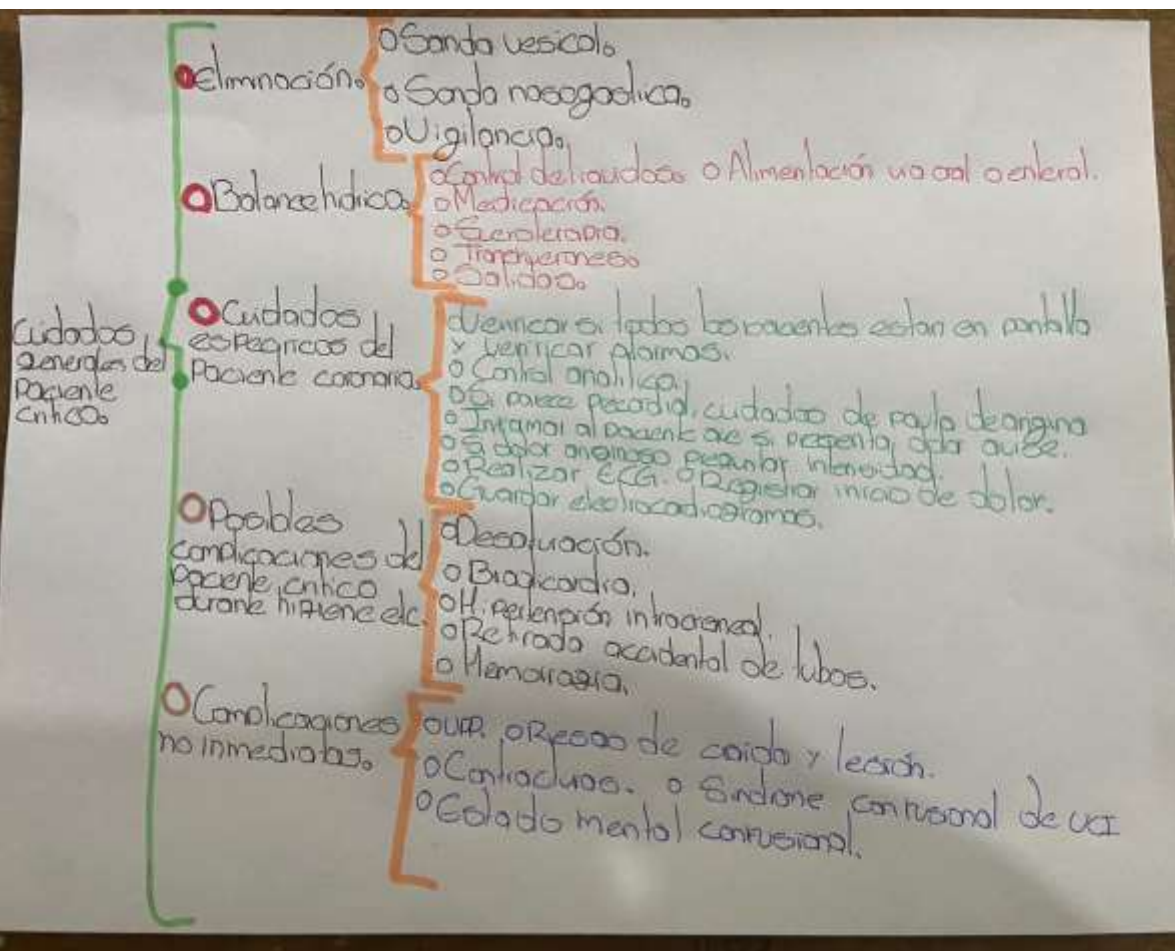 Cuidados
generales del
Paciente
critico.
Eliminación.
Sonda vesical.
Sonda nasogastrica.
Vigilancia.
Balance hidrico.
Control de liquidos. Alimentación via oral o enteral.
Medicación.
Sueroterapia.
Salidas.
Cuidados
especificos del
Paciente coronario.
Verificar si todos los pacientes estan en pantalla
y verificar alarmas.
Control analitico.
cuidados de angina
Informar al paciente que si dolor avise.
Si dolor anginoso preguntar intensidad.
Realizar ECG. Registrar inicio de dolor.
Guardar electrocardiogramas.
Posibles
complicaciones del
paciente critico
durante higiene etc.
Desaturación.
Bradicardia.
Hipertensión intracraneal.
Retirada accidental de tubos.
Hemorragia.
Complicaciones
no inmediatas.
UPP. Riesgo de caida y lesión.
Contracturas. Sindrome confusional de UCI
Estado mental confusional.